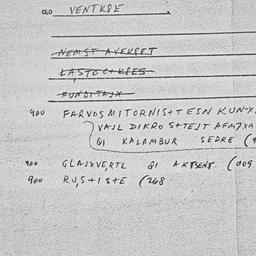 060 VENTKPE
NEMST AVEKSET
LASTO C+KSES
FUNDITAJX
400 FARVOS MITORNIS+T ESN KUN-X
VAJL DIKRO S+TEJT AFM7XA
QI KALAMBUR SEDRE (
900 GLAJXVERTL QI AKTSENT (009
900 RUS+IS+E (268